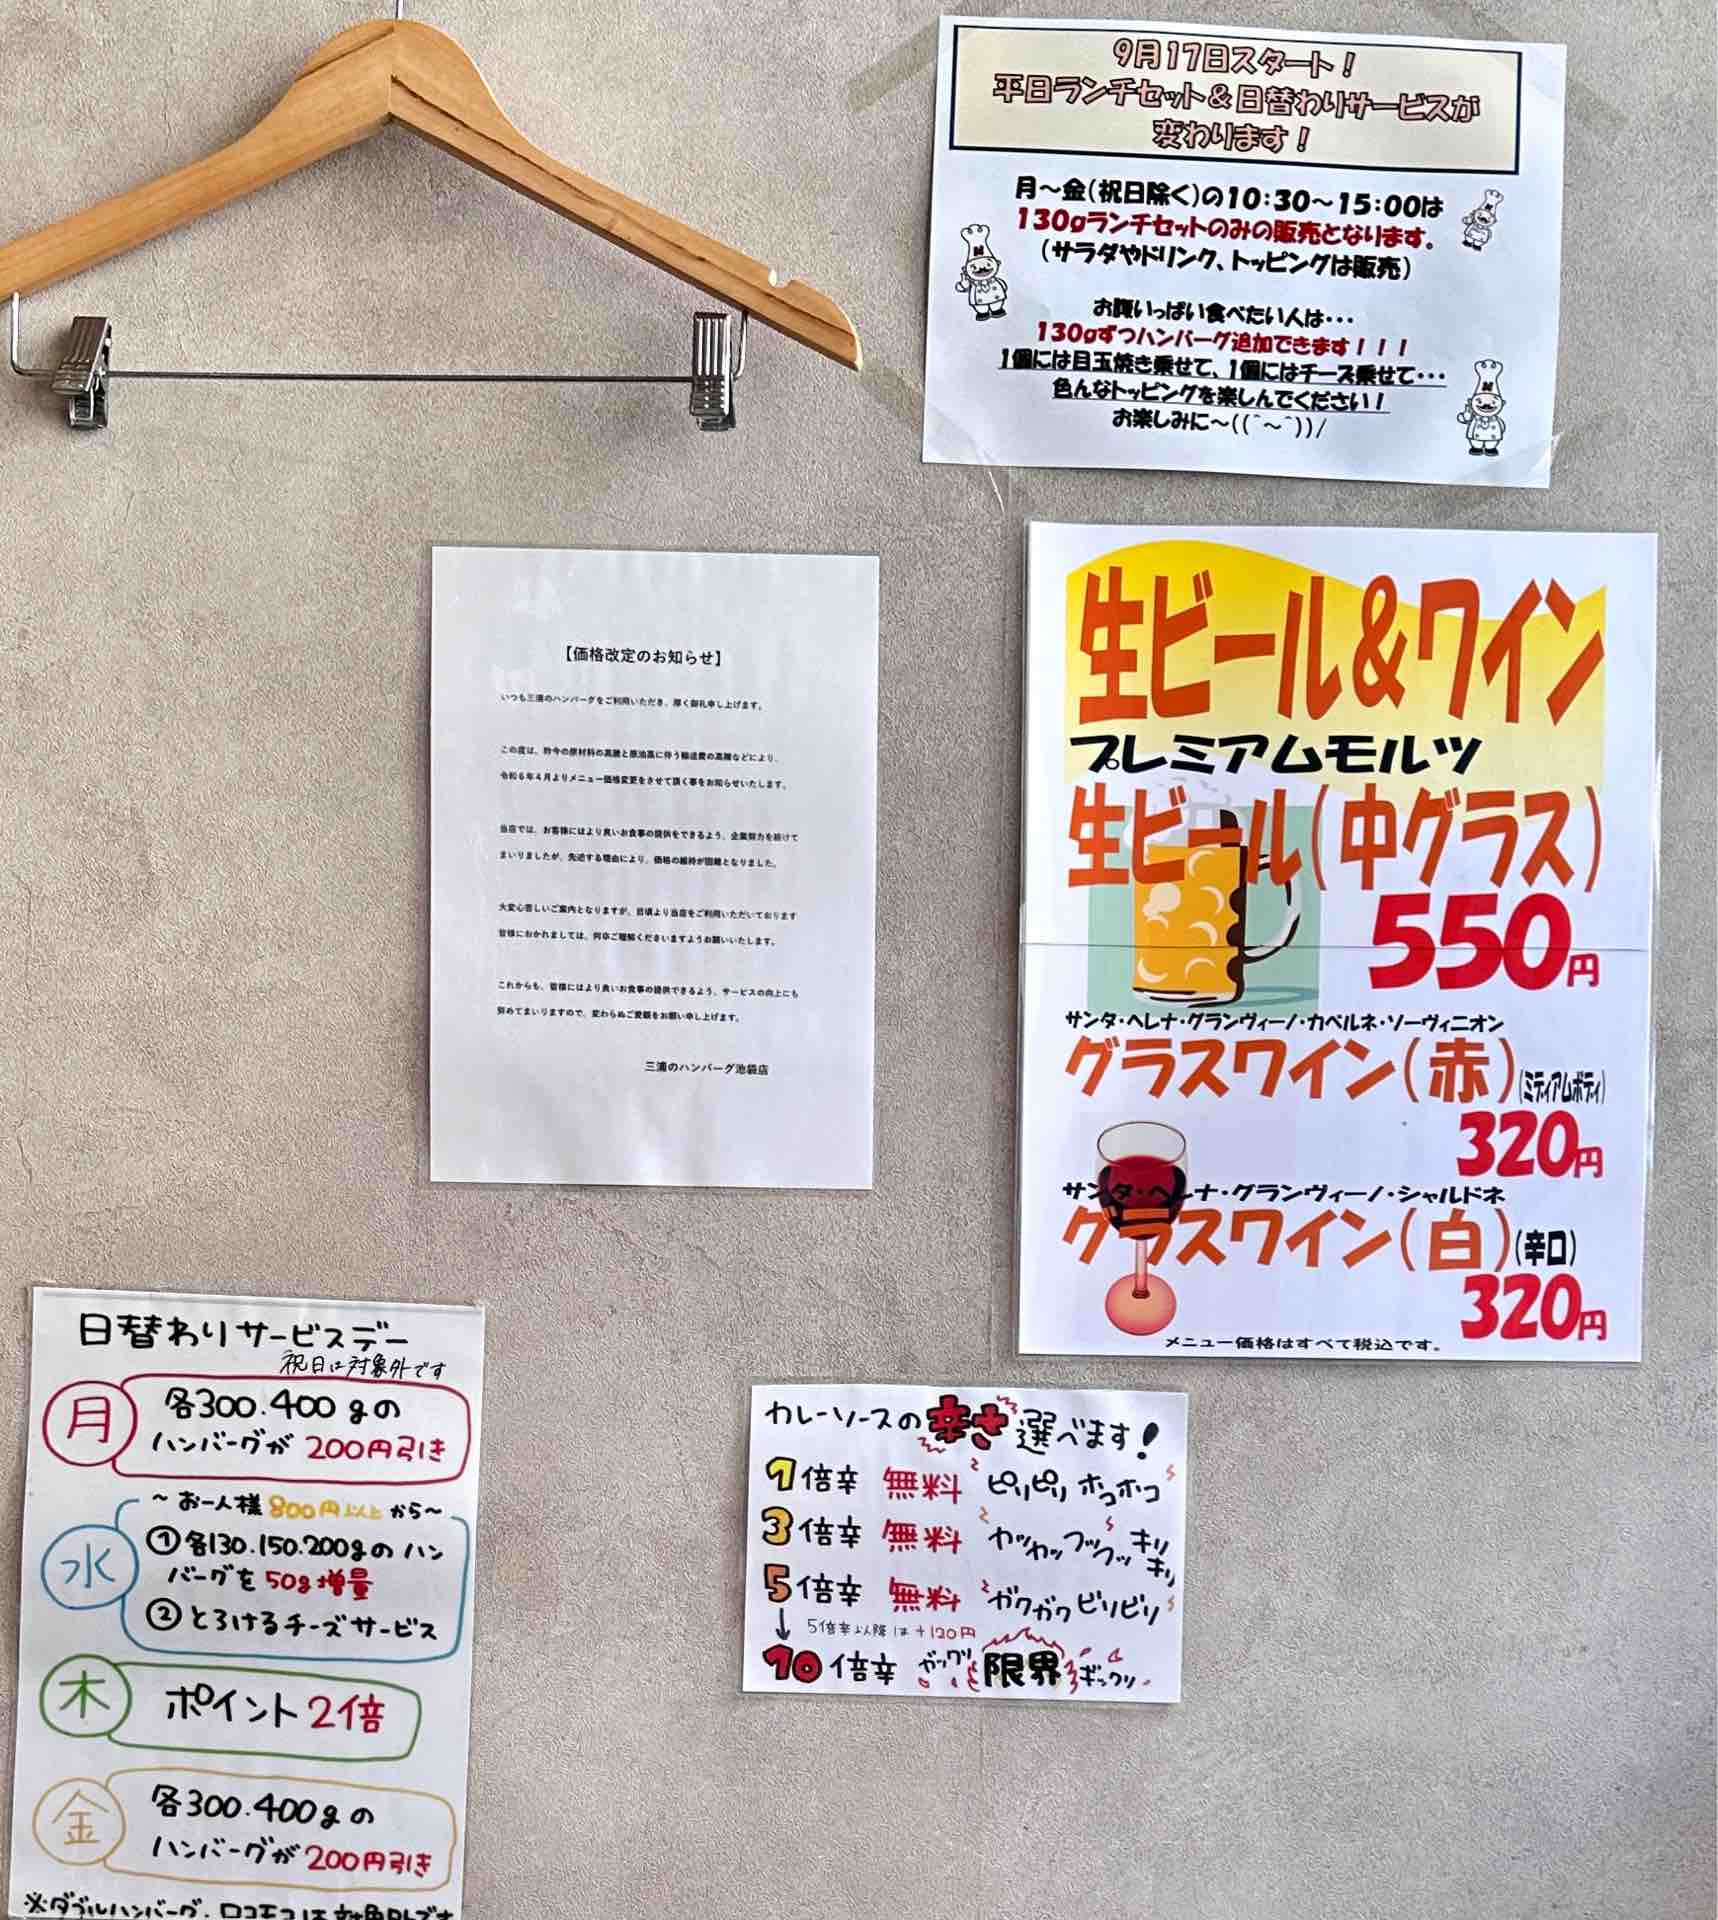 9月17日スタート！
平日ランチセット＆日替わりサービスが
変わります！
月～金(祝日除く)の10:30～15:00は
130gランチセットのみの販売となります。
(サラダやドリンク、トッピングは販売)
お腹いっぱい食べたい人は・・・
130gずつハンバーグ追加できます！！！
1個には目玉焼き乗せて、1個にはチーズ乗せて・・・
色んなトッピングを楽しんでください！
お楽しみに～((＾～＾))/
【価格改定のお知らせ】
いつも三浦のハンバーグをご利用いただき、厚く御礼申し上げます。
この度は、昨今の原材料の高騰と原油高に伴う輸送費の高騰などにより、
令和6年4月よりメニュー価格変更をさせて頂く事をお知らせいたします。
当店では、お客様にはより良いお食事の提供をできるよう、企業努力を続けて
まいりましたが、先述する理由により、価格の維持が困難となりました。
大変心苦しいご案内となりますが、日頃より当店をご利用いただいております
皆様におかれましては、何卒ご理解くださいますようお願いいたします。
これからも、皆様にはより良いお食事の提供できるよう、サービスの向上にも
努めてまいりますので、変わらぬご愛顧をお願い申し上げます。
三浦のハンバーグ池袋店
生ビール＆ワイン
プレミアムモルツ
生ビール(中グラス)
550円
サンタ・ヘレナ・グランヴィーノ・カベルネ・ソーヴィニオン
グラスワイン(赤)(ミディアムボディ)
320円
サンタ・ヘレナ・グランヴィーノ・シャルドネ
グラスワイン(白)(辛口)
320円
メニュー価格はすべて税込です。
日替わりサービスデー
祝日は対象外です
月 各300.400gの
ハンバーグが200円引き
～お一人様800円以上から～
水 ①各130.150.200gのハン
バーグを50g増量
②とろけるチーズサービス
木 ポイント2倍
金 各300.400gの
ハンバーグが200円引き
※ダブルハンバーグ、ロコモコは対象外です
カレーソースの辛さ選べます！
1倍辛 無料 ピリピリ ホコホコ
3倍辛 無料 カッカッフッフッ キリキリ
5倍辛 無料 ガクガクビリビリ
↓ 5倍辛以降は+120円
10倍辛 ガックリ 限界 ギックリ